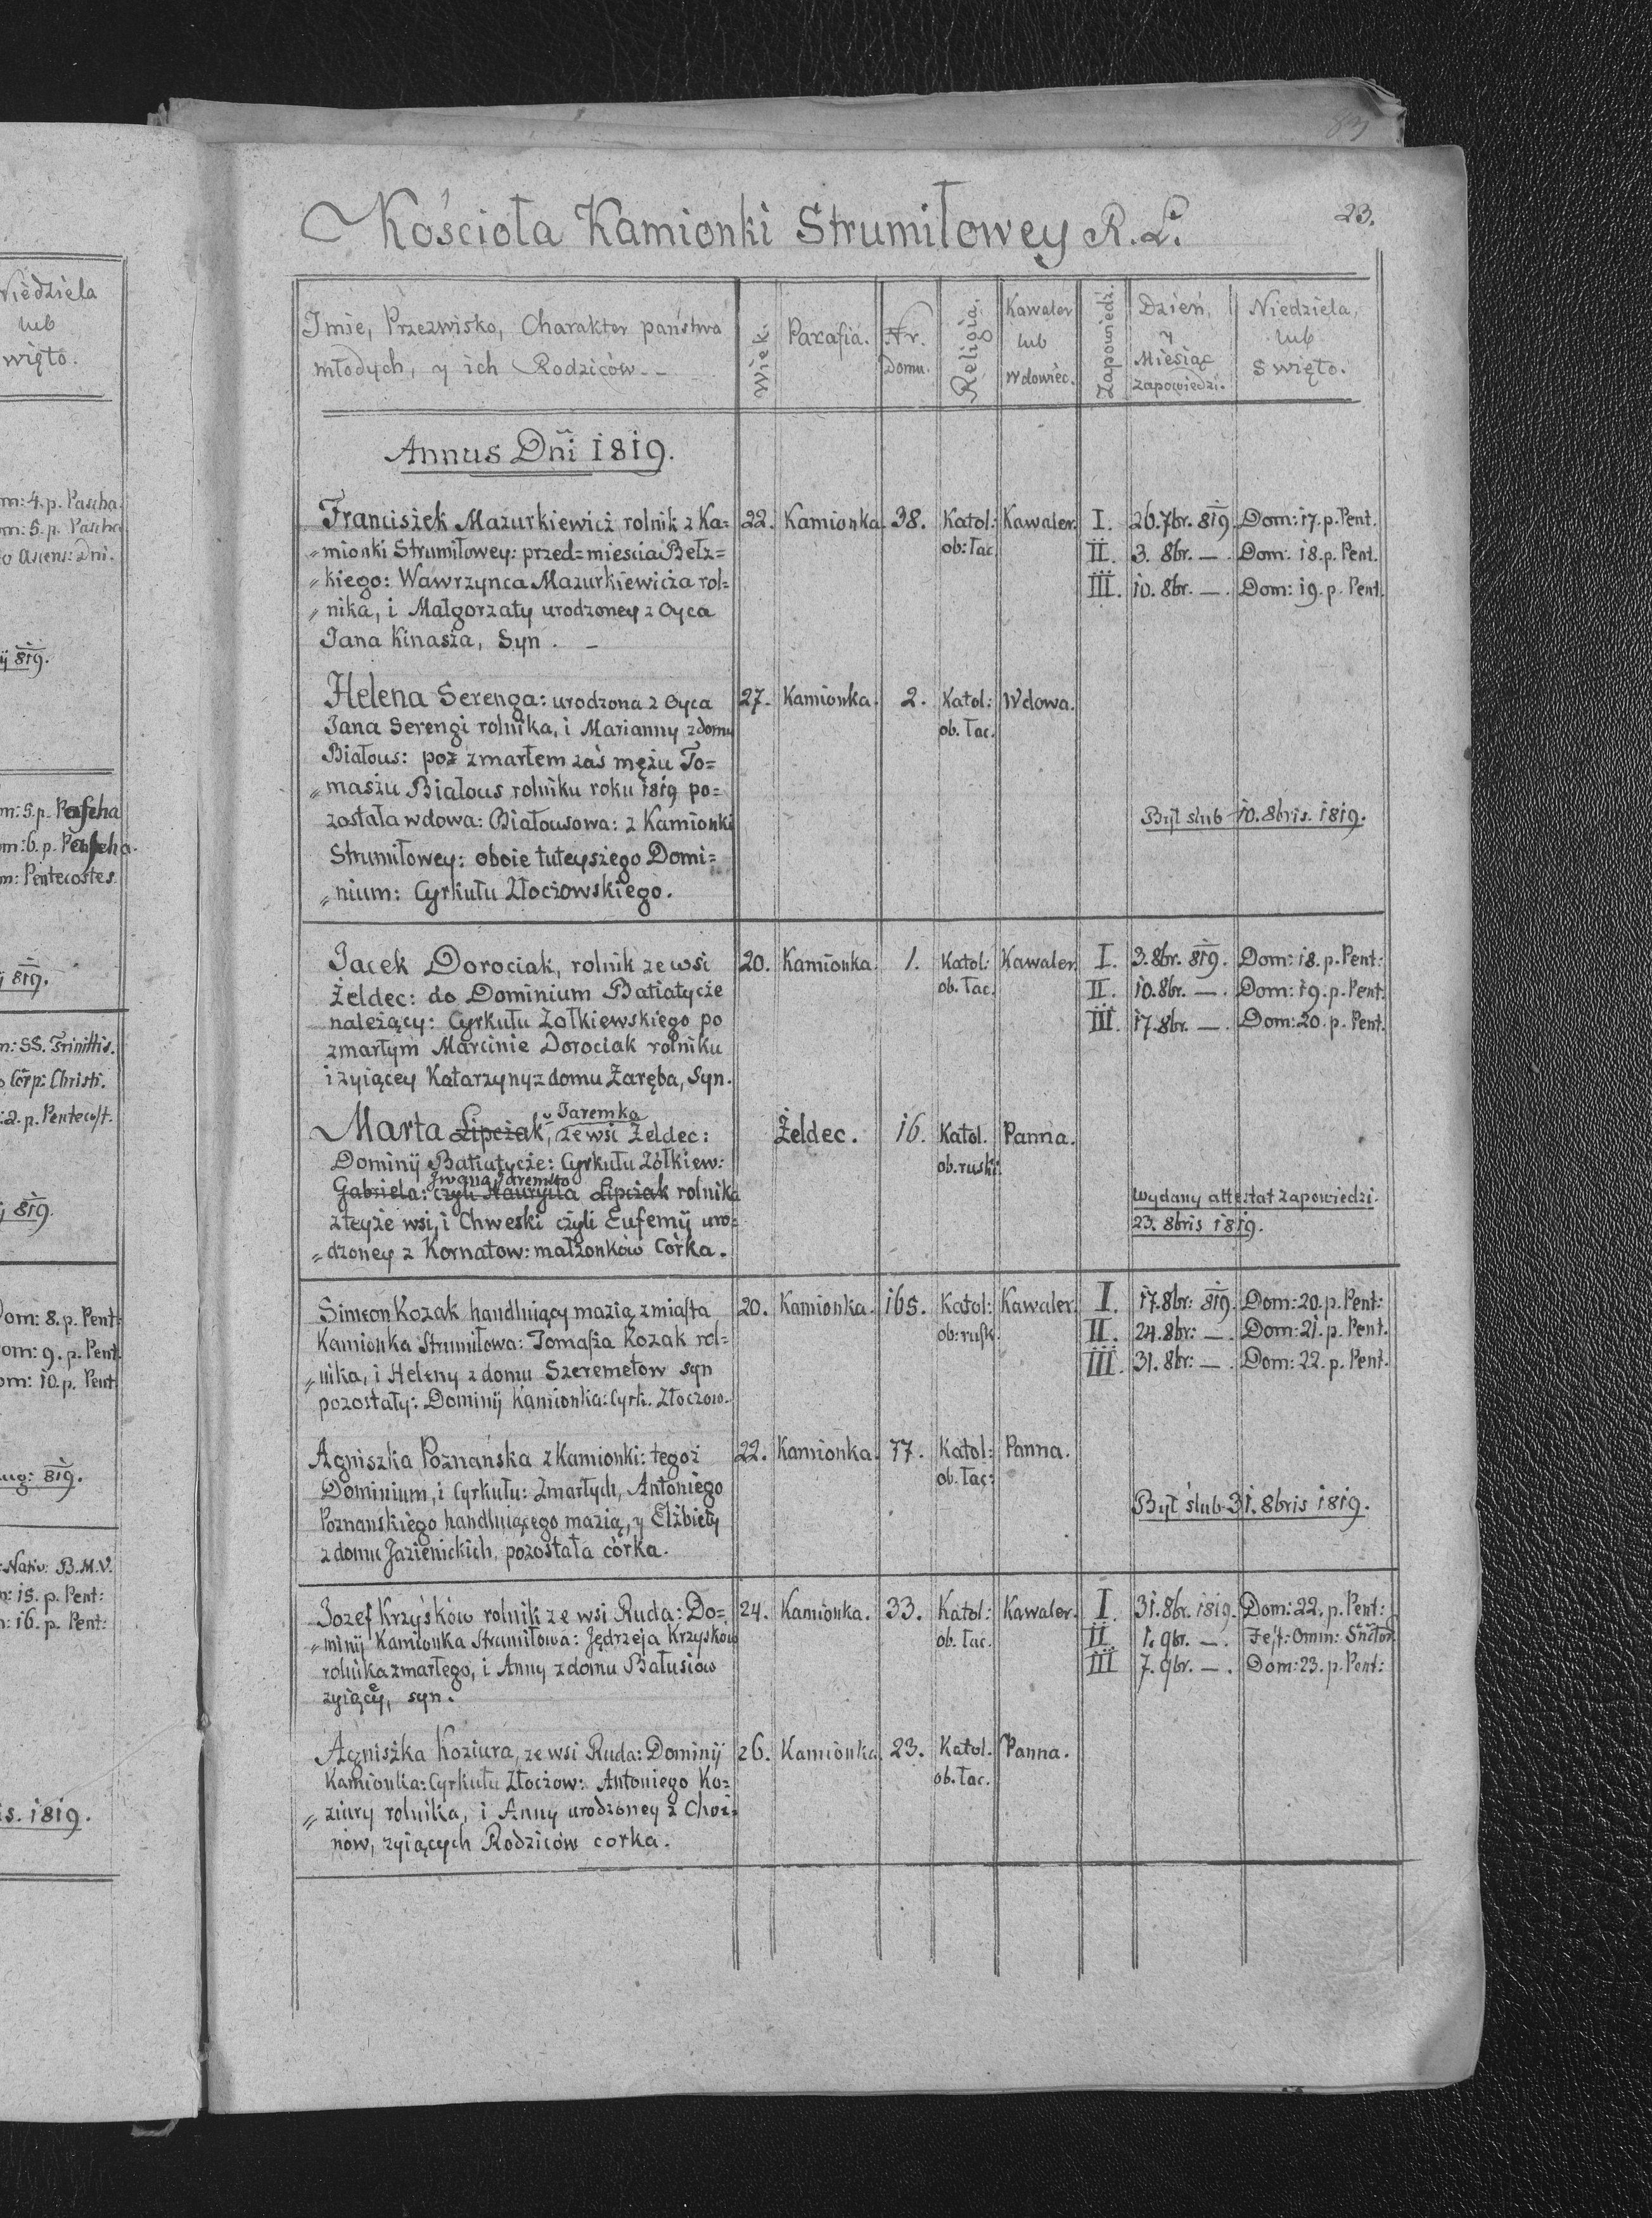 83
Kościoła Kamionki Strumiłowey R. L.
23.
Niedziela
lub
więto.
Imie, Przezwisko, Charakter państwa
młodych, y ich Rodziców --
Wiek.
Parafia.
Nr.
Domu.
Religia.
Kawaler
lub
Wdowiec.
Zapowiedź.
Dzień,
y
Miesiąc
zapowiedzi.
Niedziela,
lub
Swięto.
Annus Dni 1819.
Franciszek Mazurkiewicz rolnik z Ka= 22. Kamionka. 38. Katol: Kawaler. I. 26. 7br. 819. Dom: 17. p. Pent.
„mionki Strumiłowey: przed=miescia Bełz= ob: łac. II. 3. 8br. —. Dom: 18. p. Pent.
„kiego: Wawrzynca Mazurkiewicza rol= III. 10. 8br. —. Dom: 19. p. Pent.
„nika, i Małgorzaty urodzoney z Oyca
Jana Kinasza, Syn. -
Helena Serenga: urodzona z Oyca 27. Kamionka. 2. Katol: Wdowa.
Jana Serengi rolnika, i Marianny z domu ob. łac.
Białous: poz zmarłem zaś mężu To=
„maszu Białous rolniku roku 1819 po=
została wdowa: Białousowa: z Kamionki Był slub 10. 8bris. 1819.
Strumiłowey: oboie tuteyszego Domi=
„nium: Cyrkułu Złoczowskiego.
Jacek Dorociak, rolnik ze wsi 20. Kamionka. 1. Katol: Kawaler. I. 3. 8br. 819. Dom: 18. p. Pent:
Żeldec: do Dominium Batiatycze ob. łac. II. 10. 8br. —. Dom: 19. p. Pent.
należący: Cyrkułu Zołkiewskiego po III. 17. 8br. —. Dom: 20. p. Pent.
zmarłym Marcinie Dorociak rolniku
i zyiącey Katarzyny z domu Zaręba, Syn.
Jaremko
Marta Lipczak, ze wsi Żeldec: Żeldec. 16. Katol. Panna.
Dominij Batiatycze: Cyrkułu Zółkiew: ob. ruski.
Jwana Jaremko
Gabriela: czyli Hauryła Lipczak rolnika wydany attestat zapowiedzi.
z teyże wsi, i Chweski czyli Eufemij uro= 23. 8bris 1819.
„dzoney z Kornatow: małżonków Córka.
Simeon Kozak handluiący mazią z miasta 20. Kamionka. 165. Katol: Kawaler. I. 17. 8br: 819. Dom: 20. p. Pent:
Kamionka Strumiłowa: Tomasza Kozak rol= ob: rusk. II. 24. 8br: —. Dom: 21. p. Pent.
„nika, i Heleny z domu Szeremetow syn III. 31. 8br: —. Dom: 22. p. Pent.
pozostały: Dominij Kamionka: Cyrk. Złoczow.
Agniszka Poznańska z Kamionki: tegoż 22. Kamionka. 77. Katol: Panna.
Dominium, i Cyrkułu: Zmarłych, Antoniego ob. łac:
Poznanskiego handluiącego mazią, y Elżbiety Był ślub 31. 8bris 1819.
z domu Jazienickich, pozostała córka.
Jozef Krzyśków rolnik ze wsi Ruda: Do= 24. Kamionka. 33. Katol: Kawaler. I. 31. 8br. 1819. Dom: 22. p. Pent:
„minij Kamionka Strumiłowa: Jędrzeja Krzyskow ob. łac. II. 1. 9br. —. Fest: Omn: Snctor.
rolnika zmarłego, i Anny z domu Bałusiów III 7. 9br. —. Dom: 23. p. Pent:
zyiącey, syn.
Agniszka Koziura, ze wsi Ruda: Dominij 26. Kamionka. 23. Katol. Panna.
Kamionka: Cyrkułu Złoczow: Antoniego Ko= ob. łac.
„ziury rolnika, i Anny urodzoney z Choi=
now, zyiących Rodziców corka.
m: 4. p. Pascha.
m: 5. p. Pascha
o Ascens: Dni.
ij 819.
m: 5. p. Pascha
m: 6. p. Pascha.
m: Pentecostes.
j 819.
m: SS. Trinittis.
Corp: Christi.
: 2. p. Pentecost.
j 819.
Dom: 8. p. Pent:
om: 9. p. Pent.
om: 10. p. Pent
ug: 819.
: Nativ: B. M. V.
n: 15. p. Pent:
n: 16. p. Pent:
is. 1819.